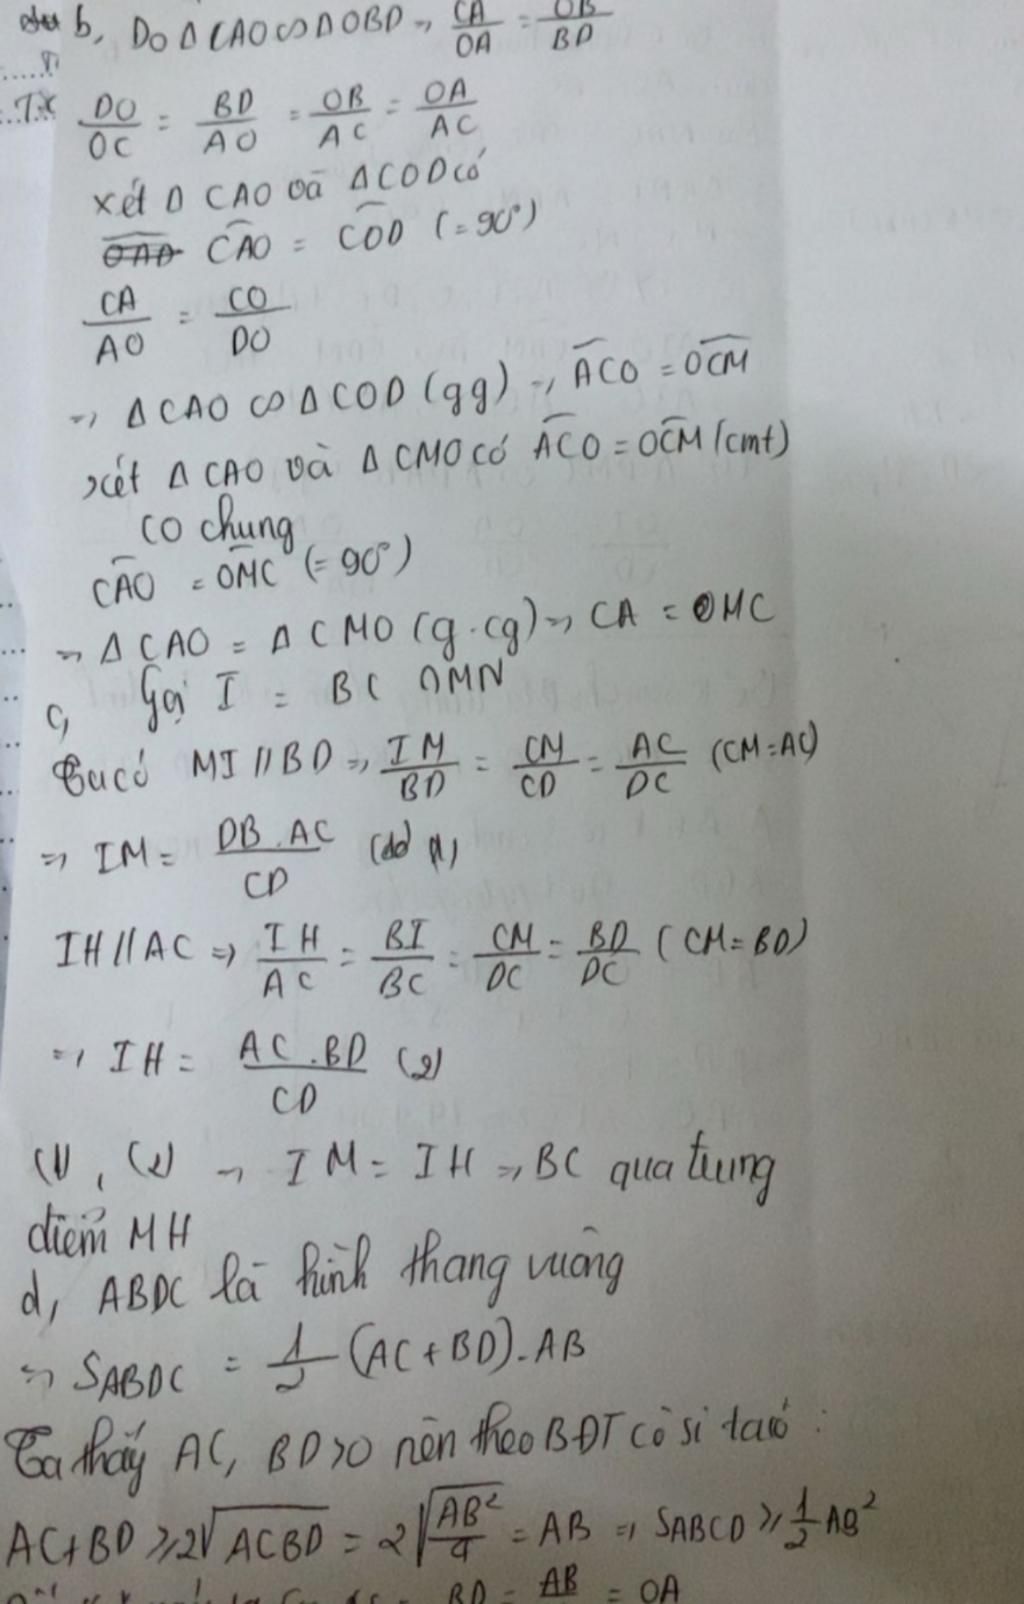 b, Do Δ CAO ∽ Δ OBD => CA/OA = OB/BD
DO/OC = BD/AO = OB/AC = OA/AC
xét Δ CAO và Δ COD có
CAO = COD (= 90°)
CA/AO = CO/DO
=> Δ CAO ∽ Δ COD (gg) => ACO = OCM
xét Δ CAO và Δ CMO có ACO = OCM (cmt)
CO chung
CAO = OMC (= 90°)
=> Δ CAO = Δ CMO (g.cg) => CA = MC
c, Gọi I = BC ∩ MN
Ta có MI // BD => IM/BD = CM/CD = AC/DC (CM = AC)
=> IM = DB.AC/CD
IH // AC => IH/AC = BI/BC = CM/DC = BD/DC (CM = BD)
=> IH = AC.BD/CD (2)
(1), (2) => IM = IH => BC qua trung
điểm MH
d, ABDC là hình thang vuông
=> SABDC = 1/2 (AC + BD).AB
Ta thấy AC, BD > 0 nên theo BĐT cô si ta có :
AC + BD ≥ 2√ACBD = 2√AB²/4 = AB => SABCD ≥ 1/2 AB²
BD = AB = OA